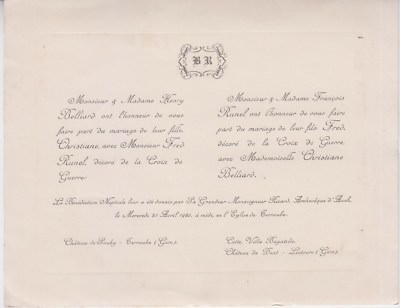 BR
Monsieur & Madame Henry
Belliard ont l'honneur de vous
faire part du mariage de leur fille
Christiane, avec Monsieur Fred
Runel, décoré de la Croix de
Guerre.
Monsieur & Madame François
Runel ont l'honneur de vous
faire part du mariage de leur fils Fred,
décoré de la Croix de Guerre,
avec Mademoiselle Christiane
Belliard.
La Bénédiction Nuptiale leur a été donnée par Sa Grandeur Monseigneur Ricard, Archevêque d'Auch,
le Mercredi Avril à midi, en l'Eglise de Terraube.
Château de - Terraube (Gers).
Villa
Château de - Lectoure (Gers).